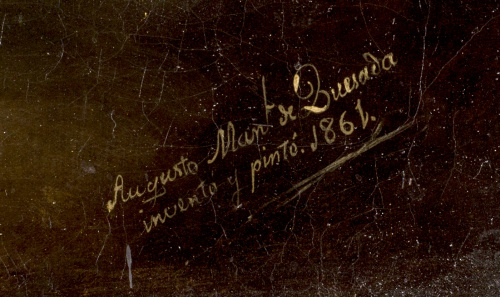 Augusto Man.ˡ de Quesada
invento y pintó. 1861.